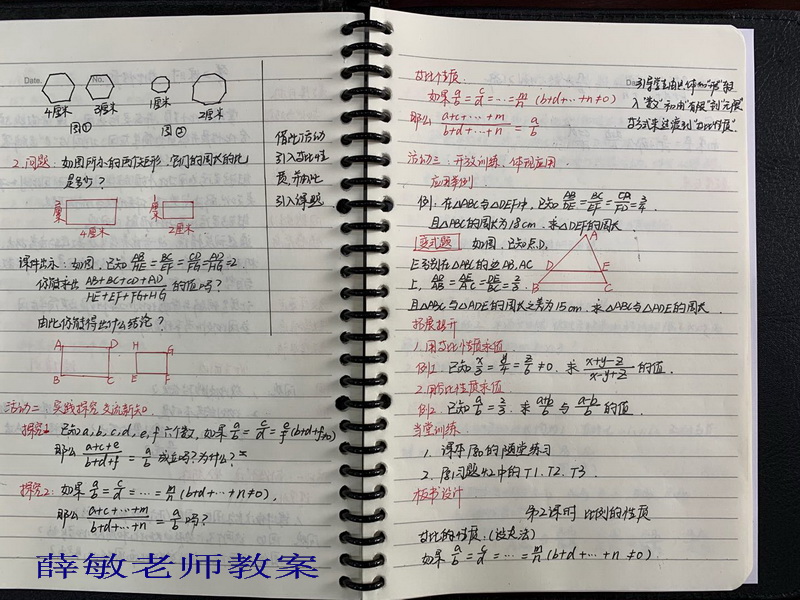 Date.
No.
4厘米
3厘米
1厘米
2厘米
图①
图②
借此活动
引入等比性
质,并由此
引入课题
2.问题:如图所示的两个矩形,它们的周长的比
是多少?
2厘米
4厘米
1厘米
2厘米
课件出示:如图,已知 AB/HE = BC/EF = CD/FG = AD/HG = 2.
你能求出 (AB+BC+CD+AD)/(HE+EF+FG+HG) 的值吗?
由此你能得出什么结论?
A D H G
B C E F
活动二 实践探究 交流新知
探究1 已知a,b,c,d,e,f六个数,如果 a/b = c/d = e/f (b+d+f≠0)
那么 (a+c+e)/(b+d+f) = a/b 成立吗?为什么?
探究2:如果 a/b = c/d = … = m/n (b+d+…+n≠0),
那么 (a+c+…+m)/(b+d+…+n) = a/b 吗?
薛敏老师教案
等比性质:
如果 a/b = c/d = … = m/n (b+d+…+n≠0)
那么 (a+c+…+m)/(b+d+…+n) = a/b
引导学生由
入"数"
等式来过渡到"等比性质".
活动三:开放训练,体现应用
应用举例
例:在△ABC与△DEF中,已知 AB/DE = BC/EF = CA/FD = 3/4.
且△ABC的周长为18cm.求△DEF的周长.
变式题 如图,已知点D,
E分别在△ABC的边AB,AC
上, AD/AB = AE/AC = DE/BC = 2/3.
A
D E
B C
且△ABC与△ADE的周长之差为15cm,求△ABC与△ADE的周长.
拓展提升
1.用等比性质求值
例1.已知 x/3 = y/4 = z/6 ≠0.求 (x+y-z)/(x-y+z) 的值.
2.用合比性质求值
例2.已知 a/b = 2/3.求 (a+b)/b 与 (a-b)/b 的值.
当堂训练
1.课本 的随堂练习
2. 习题 中的T1.T2.T3.
板书设计
第2课时 比例的性质
等比的性质:(设k法)
如果 a/b = c/d = … = m/n (b+d+…+n≠0)